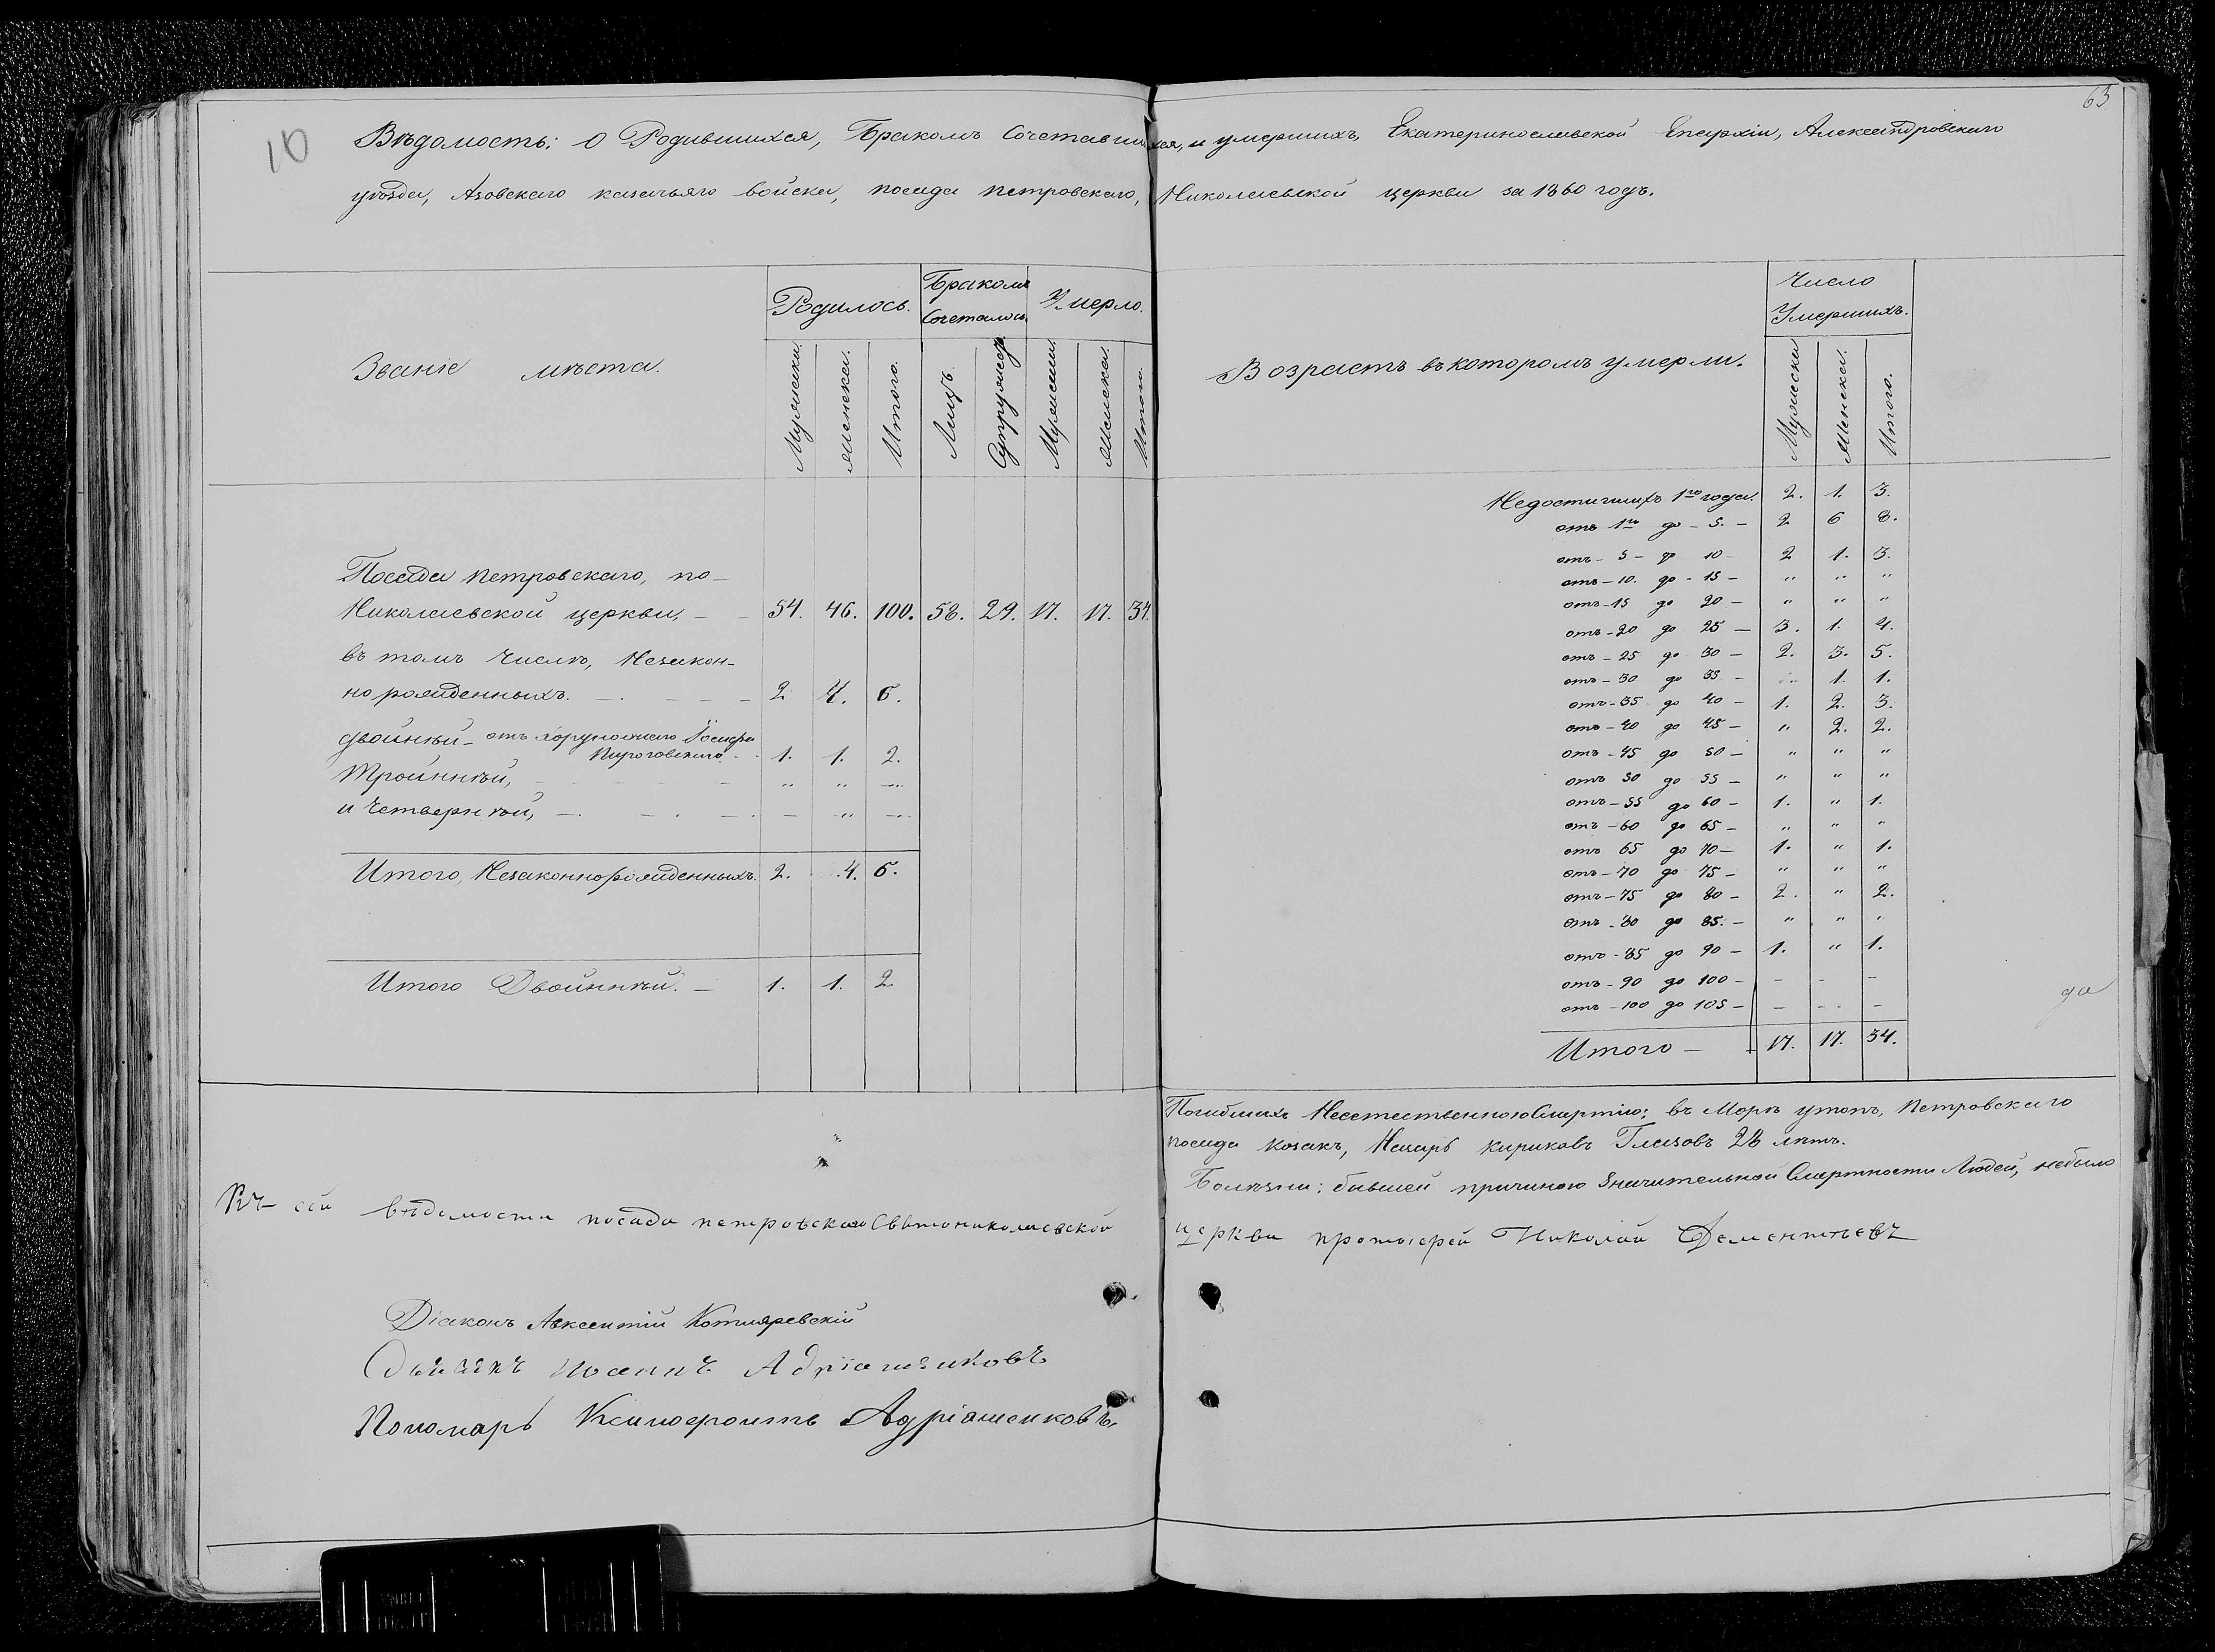 63
10
Вѣдомость; О Родившихся, Бракомъ Сочетавшихся, и умершихъ, Екатеринославской Епархіи, Александровскаго
уѣзда, Азовскаго казачьяго войска, посада петровскаго, Николаевской церкви за 1860 годъ.
Званіе мѣста.
Родилось.
Бракомъ Сочеталось.
Умерло.
Мужеска.
женска.
Итого.
Лицъ.
Супружеств.
Мужеска.
женска.
Итого.
Посада петровскаго, по-
Николаевской церкви, - - 54. 46. 100. 58. 29. 17. 17. 34.
въ томъ числѣ, Незакон-
но рожденныхъ. - 2 4. 6.
двойнѣй - отъ хорунжаго
1. 1. 2.
Тройннѣй, " " "
и Четвернѣй, - - " "
Итого, Незаконнорожденныхъ. 2. 4. 6.
Итого Двойннѣй. - 1. 1. 2
Возрастъ въ которомъ умерли.
Число
Умершихъ.
Мужеска
Женска.
Итого.
Недостигшихъ 1го года. 2. 1. 3.
отъ 1го до - 5. - 2 6 8.
отъ - 5 - до 10 - 2 1. 3.
отъ - 10. до - 15 - " " "
отъ - 15 до 20 - " " "
отъ - 20 до 25 - 3. 1. 4.
отъ - 25 до 30 - 2. 3. 5.
отъ - 30 до 35 - " 1. 1.
отъ - 35 до 40 - 1. 2. 3.
отъ - 40 до 45 - " 2. 2.
отъ - 45 до 50 - " " "
отъ 50 до 55 - " " "
отъ - 55 до 60 - 1. " 1.
отъ - 60 до 65 - " " "
отъ 65 до 70 - 1. " 1.
отъ - 70 до 75 - " " "
отъ - 75 до 80 - 2. " 2.
отъ - 80 до 85. - " " "
отъ - 85 до 90 - 1. " 1.
отъ - 90 до 100 - - - -
отъ - 100 до 105 - - - -
Итого - 17. 17. 34.
Погибшихъ Неестественною Смертію; въ Морѣ утопъ, Петровскаго
посада козакъ, Назаръ Кириковъ Глазовъ 28 лѣтъ.
Болѣзни; бывшей причиною Значительной Смертности Людей, небыло
Къ сей вѣдомости посада петровскаго Святониколаевской церкви протоіерей Николай Дементьевъ
Діаконъ Авксентій Котляревскій
Дьячекъ Иоаннъ
Пономарь